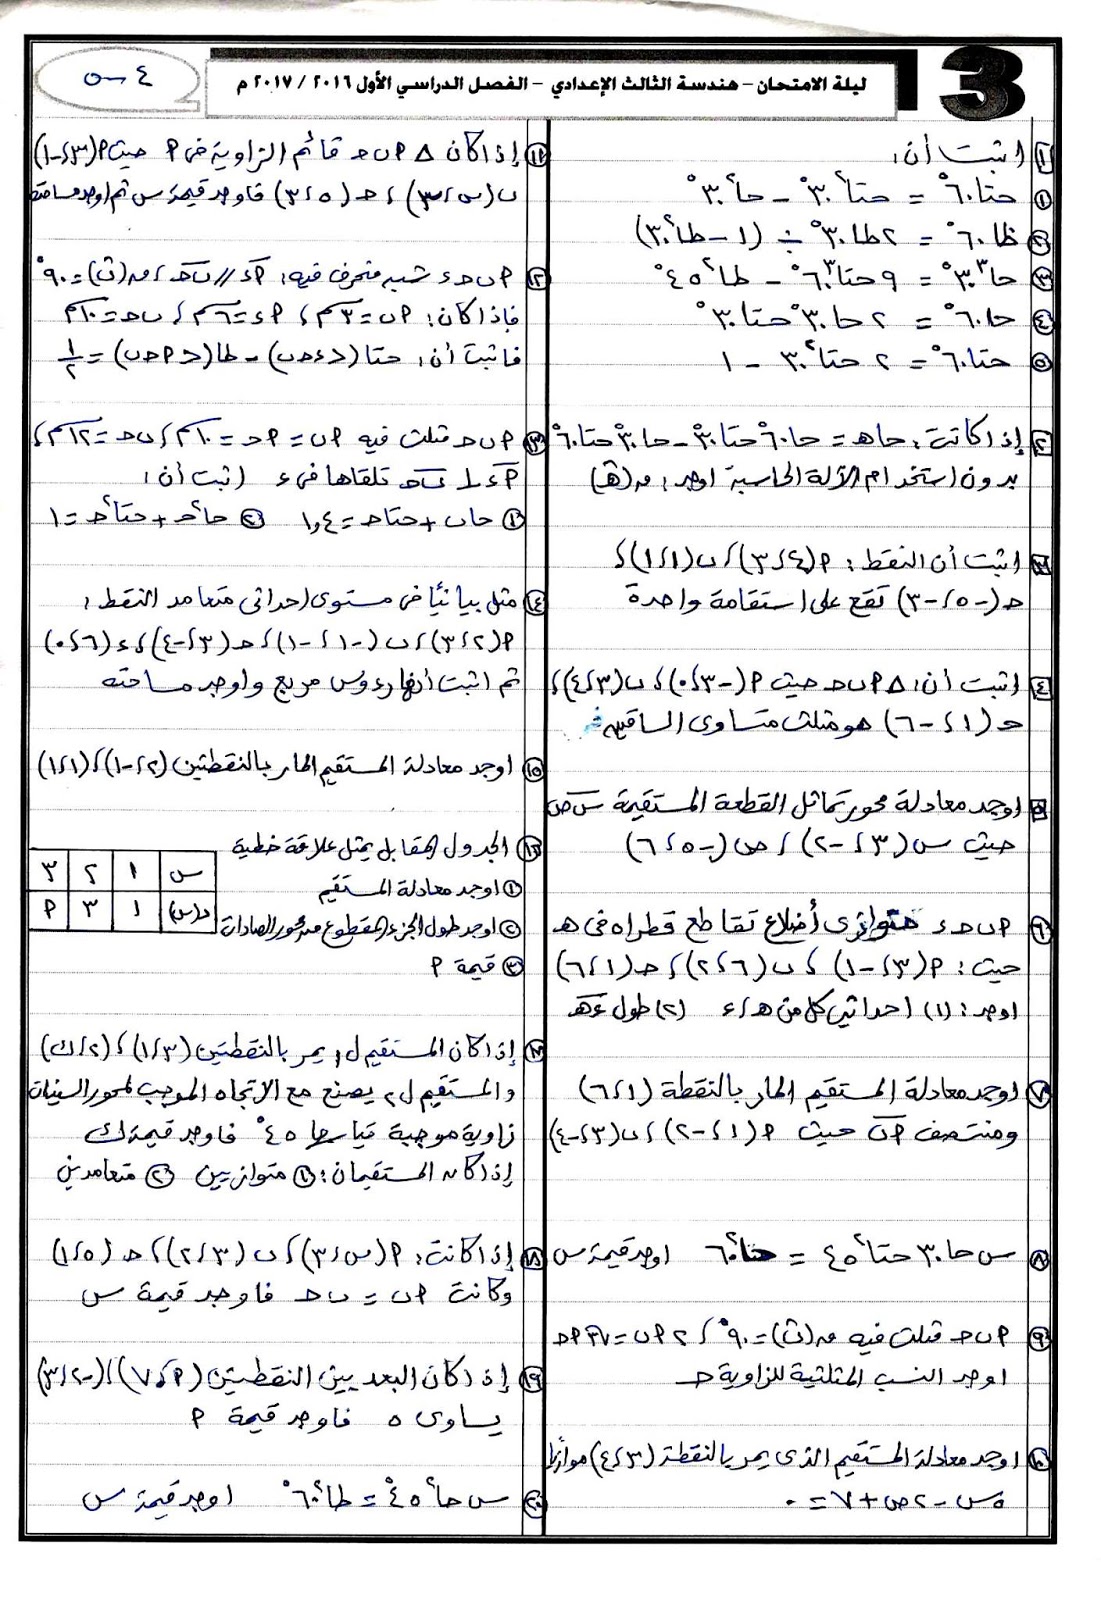 ليلة الامتحان - هندسة الثالث الإعدادي - الفصل الدراسي الأول ٢٠١٦ / ٢٠١٧ م
3
١ اثبت أن:
١ حتا٦٠° = حتا²٣٠° - حا²٣٠°
٢ ظا٦٠° = ٢طا٣٠° ÷ (١ - طا²٣٠°)
٣ حا³٣٠° = ٩حتا³٦٠° - طا²٤٥°
٤ حا٦٠° = ٢حا٣٠° حتا٣٠°
٥ حتا٦٠° = ٢حتا²٣٠° - ١
٢ إذا كانت: حاهـ = حا٦٠° حتا٣٠° - حا٣٠° حتا٦٠°
بدون استخدام الآلة الحاسبة اوجد: ق(هـ)
٣ اثبت أن النقط: P(٤،٣)، ب(١،١)،
حـ(-٥،-٣) تقع على استقامة واحدة
٤ اثبت أن: Δ Pبحـ حيث P(-٣،٠)، ب(٣،٤)،
حـ(١،-٦) هو مثلث متساوى الساقين
٥ اوجد معادلة محور تماثل القطعة المستقيمة س ص
حيث س(٣،-٢)، ص(-٥،٦)
٦ Pبحـء متوازى أضلاع تقاطع قطراه فى هـ
حيث: P(٣،-١)، ب(٦،٢)، حـ(١،٦)
اوجد: (١) احداثيى كل من هـ، ء (٢) طول ءهـ
٧ اوجد معادلة المستقيم المار بالنقطة (١،٦)
ومنتصف Pب حيث P(١،-٢)، ب(٣،-٤)
٨ س حا٣٠° حتا²٤٥° = حتا²٦٠° اوجد قيمة س
٩ Pبحـ مثلث فيه ق(ب)=٩٠°، ٢Pب = √٣ Pحـ
اوجد النسب المثلثية للزاوية حـ
١٠ اوجد معادلة المستقيم الذى يمر بالنقطة (٣،٤) موازيًا
٥س - ٢ص + ٧ = ٠
١١ إذا كان Δ Pبحـ قائم الزاوية فى P حيث P(٣،-١)
ب(س،٣)، حـ(٥،٣) فاوجد قيمة س ثم اوجد مساحته
١٢ Pبحـء شبه منحرف فيه: Pء // بحـ، ق(ب)=٩٠°
فإذا كان: Pب=٣سم، Pء=٦سم، بحـ=١٠سم
فاثبت أن: حتا(>ءحـب) - طا(>Pحـب) = ١/٢
١٣ Pبحـ مثلث فيه Pب = Pحـ = ١٠سم، بحـ=١٢سم،
Pء ⊥ بحـ تلقاها فى ء اثبت أن:
١ حاب + حتاحـ = ١,٤ ٢ حا²حـ + حتا²حـ = ١
١٤ مثل بيانيًا فى مستوى إحداثى متعامد النقط:
P(٢،٣)، ب(-١،-١)، حـ(٣،-٤)، ء(٦،٠)
ثم اثبت أنها رءوس مربع واوجد مساحته
١٥ اوجد معادلة المستقيم المار بالنقطتين (٢،-١)، (١،١)
١٦ الجدول المقابل يمثل علاقة خطية
١ اوجد معادلة المستقيم
٢ اوجد طول الجزء المقطوع من محور الصادات
٣ قيمة P
س ١ ٢ ٣
د(س) ١ ٣ P
١٧ إذا كان المستقيم ل١ يمر بالنقطتين (٣،١)، (٢،ك)
والمستقيم ل٢ يصنع مع الاتجاه الموجب لمحور السينات
زاوية موجبة قياسها ٤٥° فاوجد قيمة ك
إذا كان المستقيمان: ١ متوازيين ٢ متعامدين
١٨ إذا كانت: P(س،٣)، ب(٣،٢)، حـ(٥،١)
وكانت Pب = بحـ فاوجد قيمة س
١٩ إذا كان البعد بين النقطتين (P،٧)، (-٢،٣)
يساوى ٥ فاوجد قيمة P
٢٠ س حا²٤٥° = طا²٦٠° اوجد قيمة س